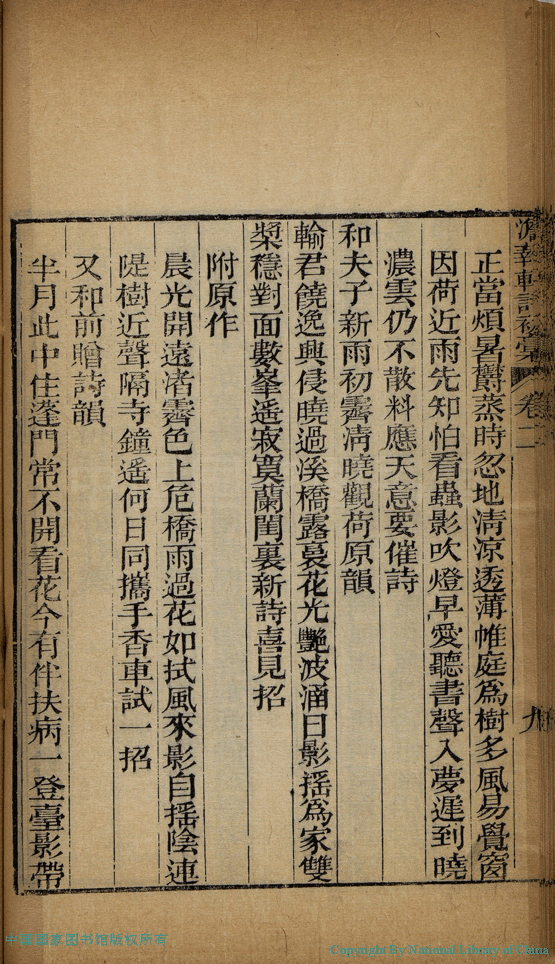 正當煩暑鬱蒸時忽地淸涼透薄帷庭爲樹多風易覺窗
因荷近雨先知怕看蟲影吹燈早愛聽書聲入夢遲到曉
濃雲仍不散料應天意要催詩
和夫子新雨初霽淸曉觀荷原韻
輸君饒逸興侵曉過溪橋露裛花光艷波涵日影搖爲家雙
槳穩對面數峯遥寂寞蘭閨裏新詩喜見招
附原作
晨光開遠渚霽色上危橋雨過花如拭風來影自搖陰連
隄樹近聲隔寺鐘遥何日同攜手香車試一招
又和前贈詩韻
半月此中住蓬門常不開看花今有伴扶病一登臺影帶
軒詩初稾
卷二
九
中國國家图书馆版权所有
Copyright By National Library of China